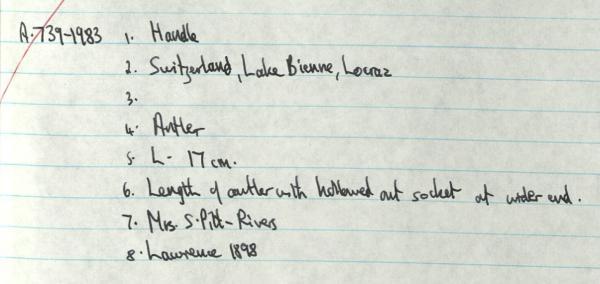 A.739-1983 1. Handle
2. Switzerland, Lake Bienne, Locraz
3.
4. Antler
5. L- 17 cm.
6. Length of antler with hollowed out socket at wider end.
7. Mrs. S. Pitt-Rivers
8. Lawrence 1898